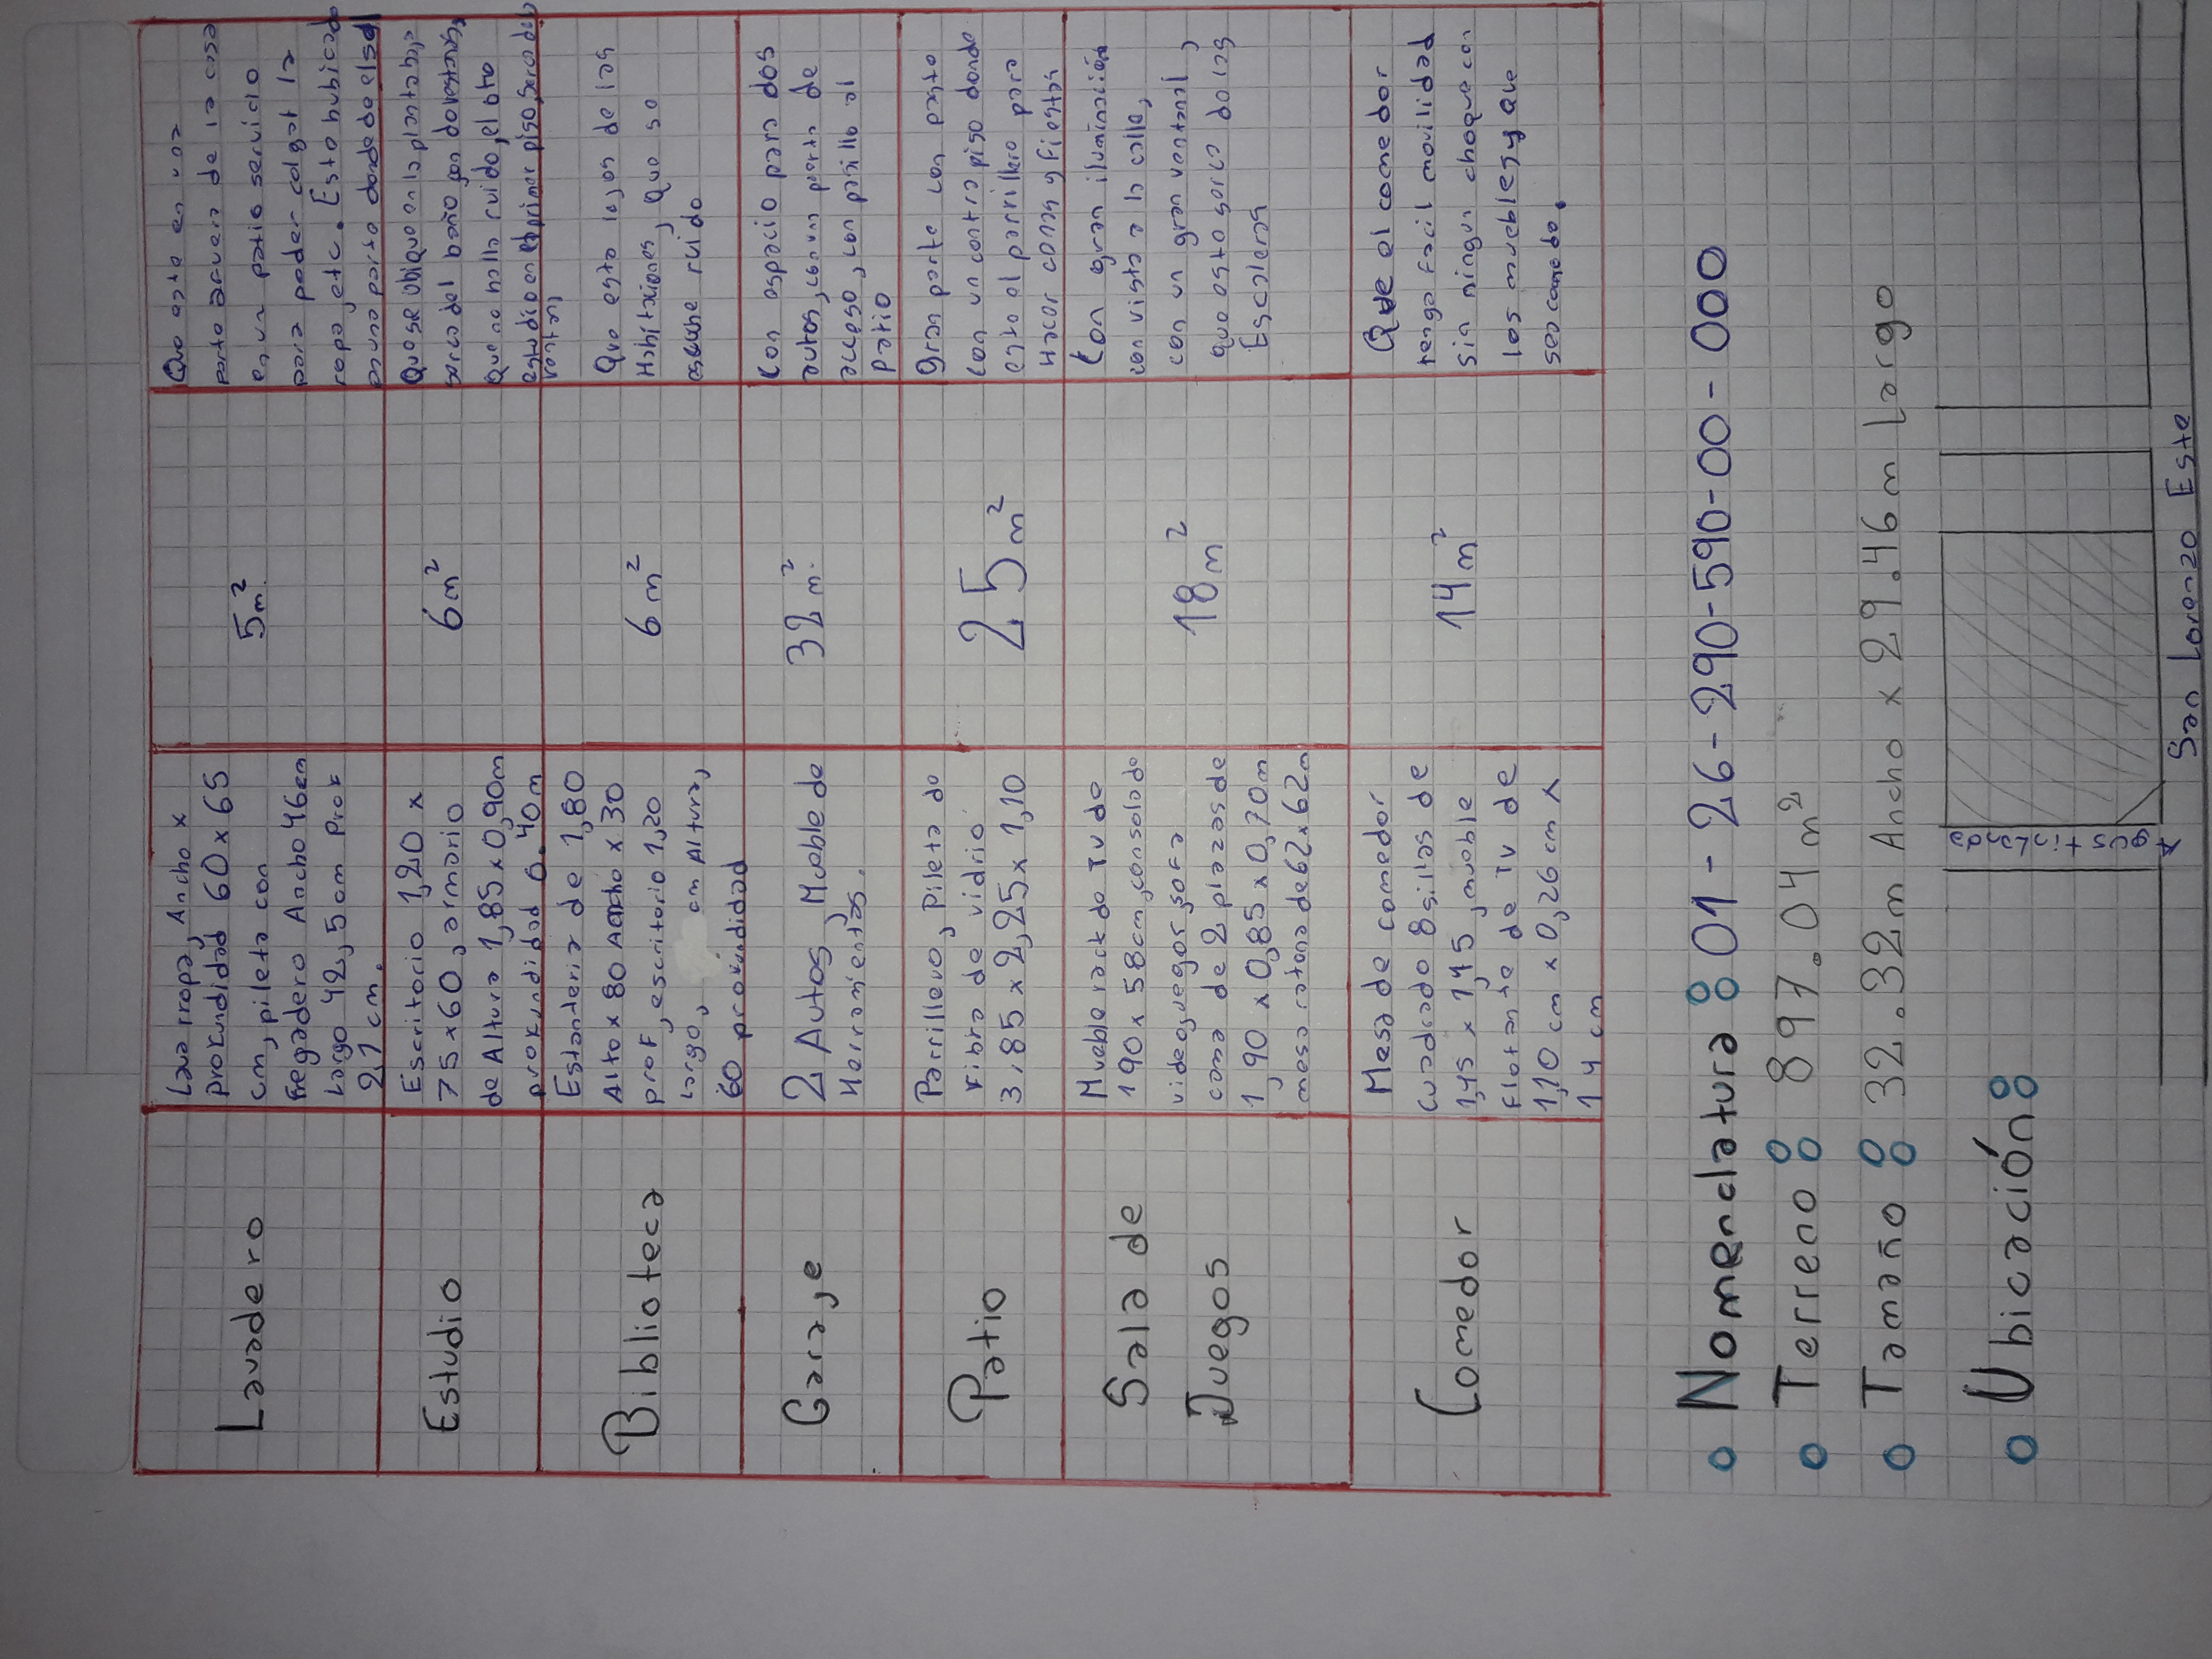 Lavadero
Lava rropa, Ancho x
profundidad 60x65
cm, pileta con
fregadero Ancho 46cm
Largo 42,5cm Prof
21 cm.
5m²
Que este en una
parte afuera de la casa
en un patio servicio
para poder colgar la
ropa, etc. Esto hubicado
en una parte donde de el sol
Estudio
Escritorio 1,20 x
75x60, armario
de Altura 1,85x0,90m
profundidad 0.40m
6m²
Que se ubique en la planta baja
serca del baño
Que no halla ruido, el
estudio en el primer piso,
ventana
Biblioteca
Estanteria de 1,80
Alto x 80 Ancho x 30
prof, escritorio 1,20
Largo, cm Altura,
60 profundidad
6m²
Que este lejos de las
Habitaciones, Que se
escuche ruido
Garaje
2 Autos, Mueble de
Herramientas.
32m²
Con espacio para dos
autos, con un porton de
acceso, con pasillo al
patio
Patio
Parrillero, Pileta de
Fibra de vidrio
3.85x2,25x1,10
25m²
Gran parte con pasto
con un contra piso donde
este el parrillero para
Hacer cenas y fiestas
Sala de
Juegos
Mueble rack de TV de
190x58cm, consola de
videojuegos, sofa
cama de 2 plazas de
1,90x0,85x0,70m
mesa ratona de 62x62m
18m²
Con gran iluminación
con vista a la calle,
con un gran ventanal,
que este serca de las
Escaleras
Comedor
Mesa de comedor
cuadrado 8 sillas de
1,45 x 1,45, mueble
flotante de TV de
1,10 cm x 0,26 cm x
14 cm
14m²
Que el comedor
tenga facil movilidad
sin ningun choque con
los muebles y que
sea comodo.
Nomenclatura: 01-26-290-590-00-000
Terreno: 897.04m²
Tamaño: 32.32m Ancho x 29.46m Largo
Ubicación:
San Lorenzo Este